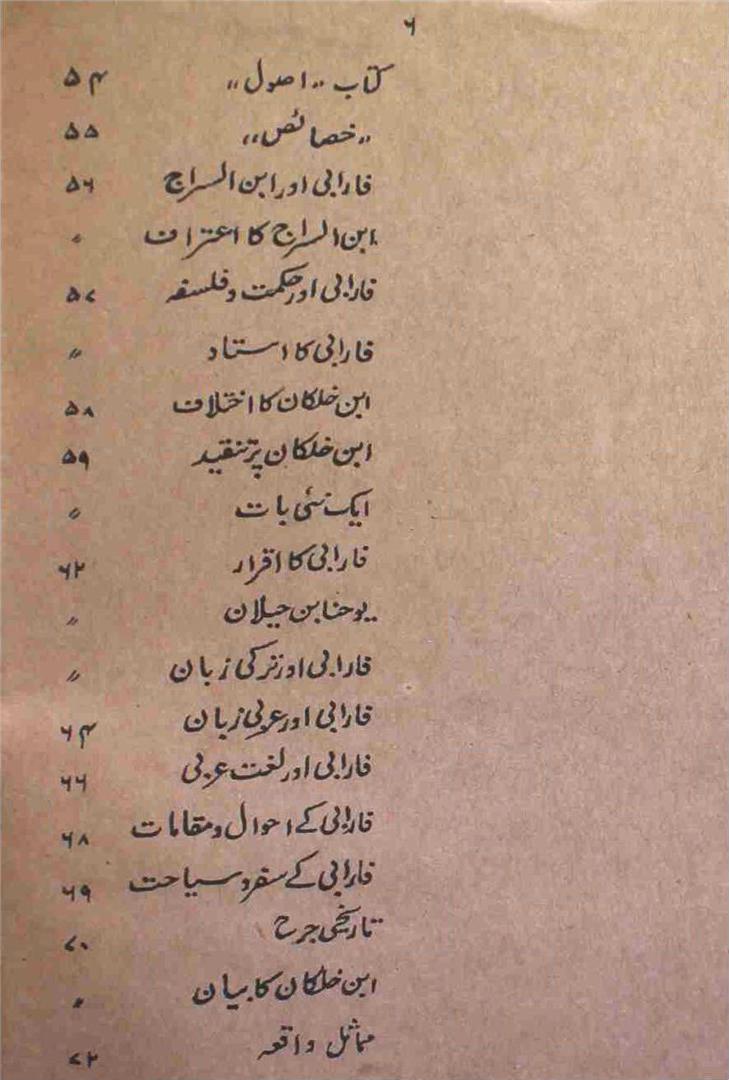 ۶
کتاب "اصول" ۵۴
"خصائص" ۵۵
فارابی اور ابن السراج ۵۶
ابن السراج کا اعتراف 〃
فارابی اور حکمت و فلسفہ ۵۷
فارابی کا استاد 〃
ابن خلکان کا اختلاف ۵۸
ابن خلکان پر تنقید ۵۹
ایک نئی بات 〃
فارابی کا اقرار ۶۲
یوحنا بن جیلان 〃
فارابی اور ترکی زبان 〃
فارابی اور عربی زبان ۶۴
فارابی اور لغت عربی ۶۶
فارابی کے احوال و مقامات ۶۸
فارابی کے سفر و سیاحت ۶۹
تاریخی جرح ۷۰
ابن خلکان کا بیان 〃
مماثل واقعہ ۷۲